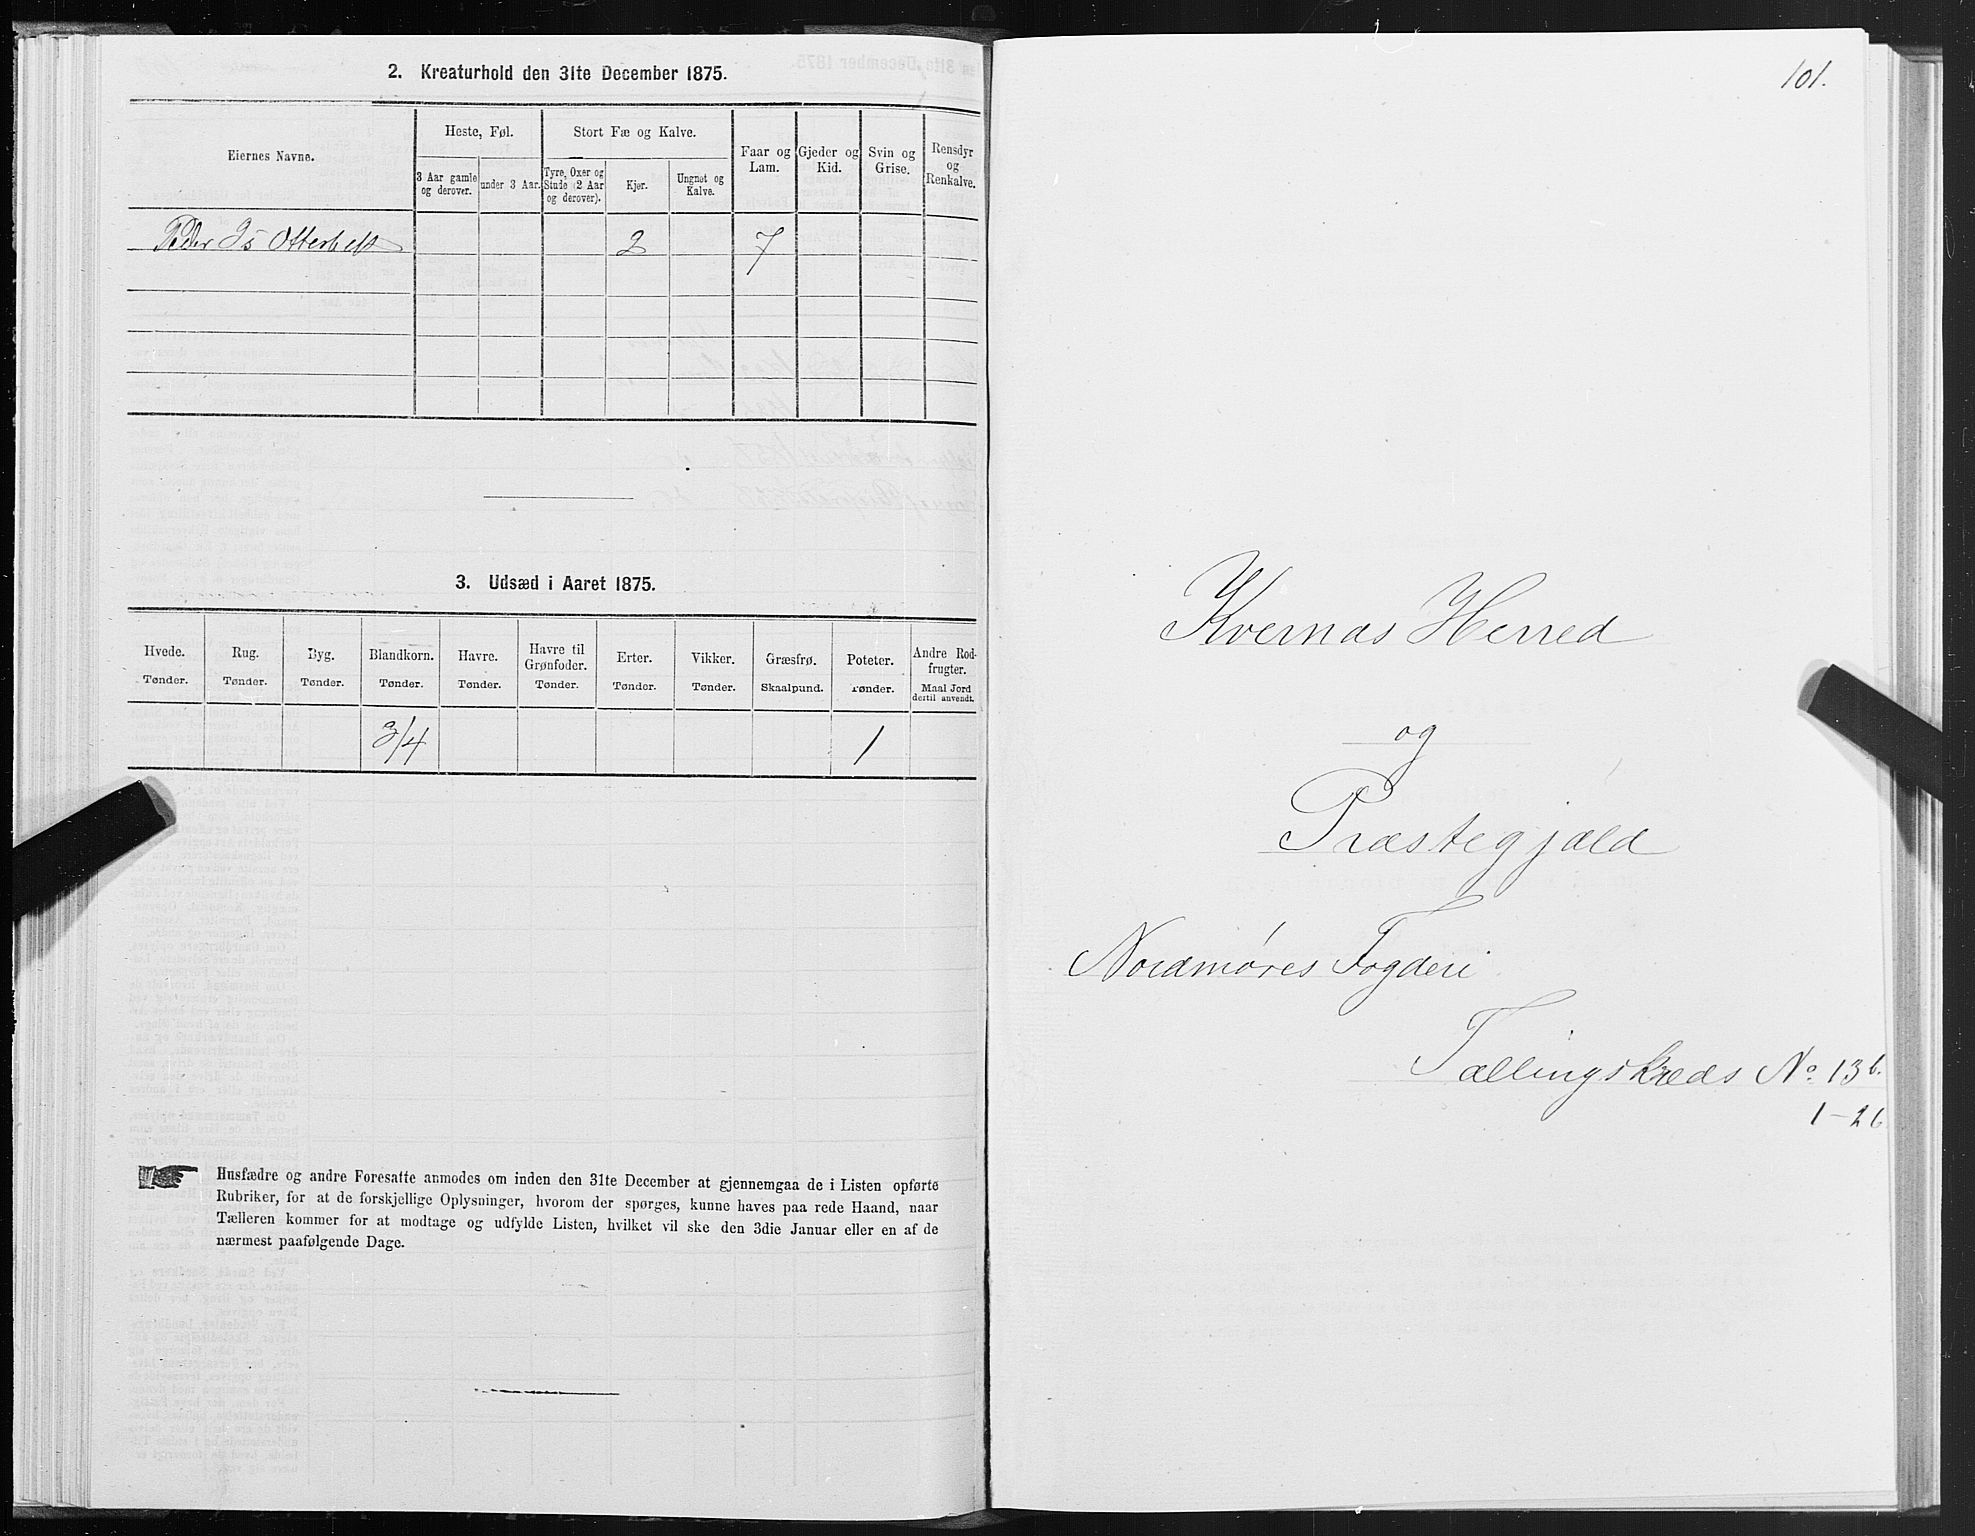 2. Kreaturhold den 31te December 1875.
Eiernes Navne.
Heste, Føl.
Stort Fæ og Kalve.
Faar og Lam.
Gjeder og Kid.
Svin og Grise.
Rensdyr og Renkalve.
3 Aar gamle og derover.
under 3 Aar.
Tyre, Oxer og Stude (2 Aar og derover).
Kjør.
Ungnøt og Kalve.
Peder Is Otterholt 2 7
3. Udsæd i Aaret 1875.
Hvede. Rug. Byg. Blandkorn. Havre. Havre til Grønfoder. Erter. Vikker. Græsfrø. Poteter. Andre Rodfrugter.
Tønder. Tønder. Tønder. Tønder. Tønder. Tønder. Tønder. Tønder. Skaalpund. Tønder. Maal Jord dertil anvendt.
3/4 1
Husfædre og andre Foresatte anmodes om inden den 31te December at gjennemgaa de i Listen opførte
Rubriker, for at de forskjellige Oplysninger, hvorom der spørges, kunne haves paa rede Haand, naar
Tælleren kommer for at modtage og udfylde Listen, hvilket vil ske den 3die Januar eller en af de
nærmest paafølgende Dage.
101.
Kvernæs Herred
og
Præstegjæld
Nordmøres Fogderi
Tællingskreds No. 13 b.
1-26